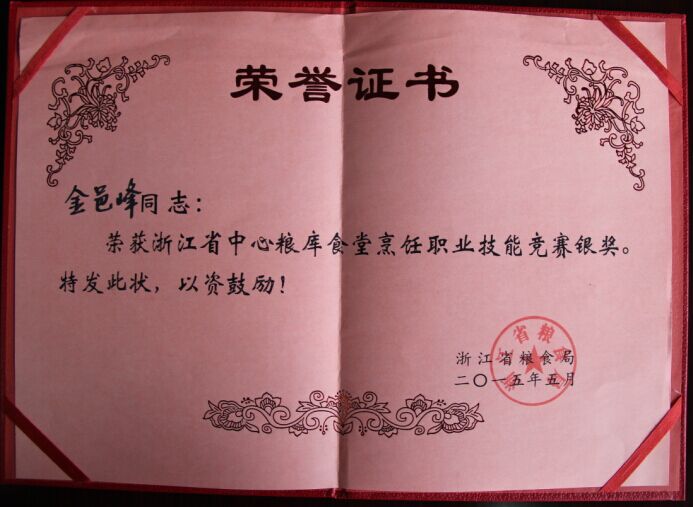 荣誉证书
金邑峰同志：
荣获浙江省中心粮库食堂烹任职业技能竞赛银奖。
特发此状，以资鼓励！
浙江省粮食局
二〇一五年五月
浙江省粮食局